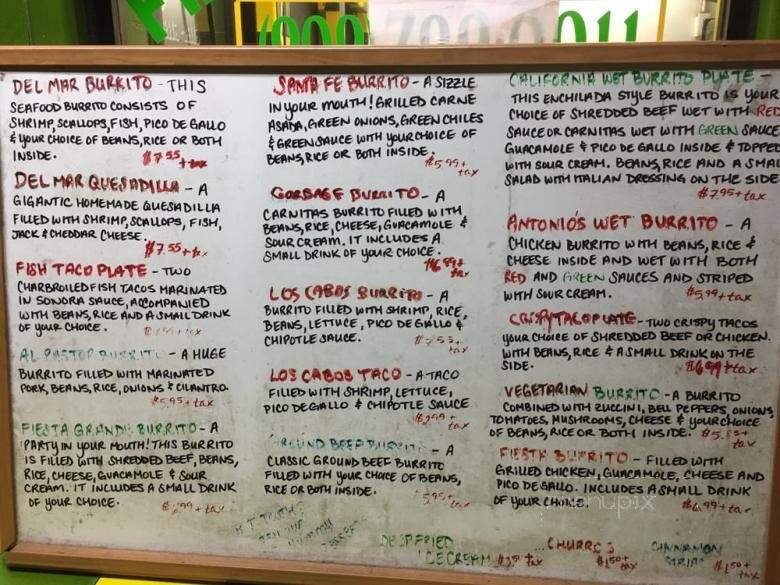 DEL MAR BURRITO - THIS
SEAFOOD BURRITO CONSISTS OF
SHRIMP, SCALLOPS, FISH, PICO DE GALLO
& YOUR CHOICE OF BEANS, RICE OR BOTH
INSIDE. $7.55 + tax
DEL MAR QUESADILLA - A
GIGANTIC HOMEMADE QUESADILLA
FILLED WITH SHRIMP, SCALLOPS, FISH,
JACK & CHEDDAR CHEESE. $7.55 + tx
FISH TACO PLATE - TWO
CHARBROILED FISH TACOS MARINATED
IN SONORA SAUCE, ACCOMPANIED
WITH BEANS, RICE AND A SMALL DRINK
OF YOUR CHOICE.
AL PASTOR BURRITO - A HUGE
BURRITO FILLED WITH MARINATED
PORK, BEANS, RICE, ONIONS & CILANTRO.
$5.95 + tax
FIESTA GRANDE BURRITO - A
PARTY IN YOUR MOUTH! THIS BURRITO
IS FILLED WITH SHREDDED BEEF, BEANS,
RICE, CHEESE, GUACAMOLE & SOUR
CREAM. IT INCLUDES A SMALL DRINK
OF YOUR CHOICE. $6.99 + tax
SANTA FE BURRITO - A SIZZLE
IN YOUR MOUTH! GRILLED CARNE
ASADA, GREEN ONIONS, GREEN CHILES
& GREEN SAUCE WITH YOUR CHOICE OF
BEANS, RICE OR BOTH INSIDE. $5.99 + tax
GORBAGE BURRITO - A
CARNITAS BURRITO FILLED WITH
BEANS, RICE, CHEESE, GUACAMOLE &
SOUR CREAM. IT INCLUDES A
SMALL DRINK OF YOUR CHOICE.
$6.99 + tax
LOS CABOS BURRITO - A
BURRITO FILLED WITH SHRIMP, RICE,
BEANS, LETTUCE, PICO DE GALLO &
CHIPOTLE SAUCE. $7.55 + tax
LOS CABOS TACO - A TACO
FILLED WITH SHRIMP, LETTUCE,
PICO DE GALLO & CHIPOTLE SAUCE
$2.99 + tax
GROUND BEEF BURRITO - A
CLASSIC GROUND BEEF BURRITO
FILLED WITH YOUR CHOICE OF BEANS,
RICE OR BOTH INSIDE. $5.95 + tax
CALIFORNIA WET BURRITO PLATE -
THIS ENCHILADA STYLE BURRITO IS YOUR
CHOICE OF SHREDDED BEEF WET WITH RED
SAUCE OR CARNITAS WET WITH GREEN SAUCE
GUACAMOLE & PICO DE GALLO INSIDE & TOPPED
WITH SOUR CREAM. BEANS, RICE AND A SMAL
SALAD WITH ITALIAN DRESSING ON THE SIDE
$7.95 + tax
ANTONIO'S WET BURRITO - A
CHICKEN BURRITO WITH BEANS, RICE &
CHEESE INSIDE AND WET WITH BOTH
RED AND GREEN SAUCES AND STRIPED
WITH SOUR CREAM. $5.99 + tax
CRISPY TACO PLATE - TWO CRISPY TACOS
YOUR CHOICE OF SHREDDED BEEF OR CHICKEN.
WITH BEANS, RICE & A SMALL DRINK ON THE
SIDE. $6.99 + tax
VEGETARIAN BURRITO - A BURRITO
COMBINED WITH ZUCCINI, BELL PEPPERS, ONIONS,
TOMATOES, MUSHROOMS, CHEESE & YOUR CHOICE
OF BEANS, RICE OR BOTH INSIDE.
FIESTA BURRITO - FILLED WITH
GRILLED CHICKEN, GUACAMOLE, CHEESE AND
PICO DE GALLO. INCLUDES A SMALL DRINK
OF YOUR CHOICE. $6.99 + tax
DEEP FRIED
ICE CREAM
CHURROS
$1.50 + tax
CINNAMON
STRIPS $1.50 + tax